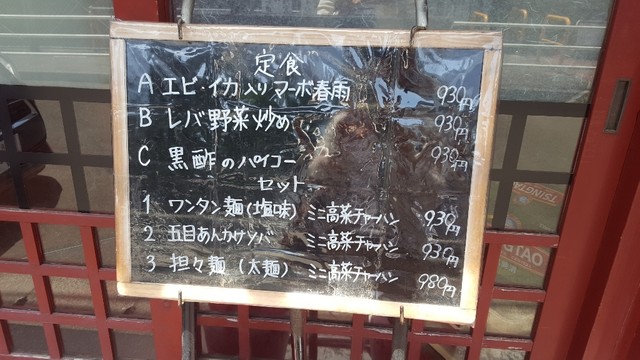 定食
A エビ・イカ入りマーボ春雨 930円
B レバ野菜炒め 930円
C 黒酢のパイコー 930円
セット
1 ワンタン麺(塩味) ミニ高菜チャーハン 930円
2 五目あんかけソバ ミニ高菜チャーハン 930円
3 担々麺(太麺) ミニ高菜チャーハン 980円
TSINGTAO